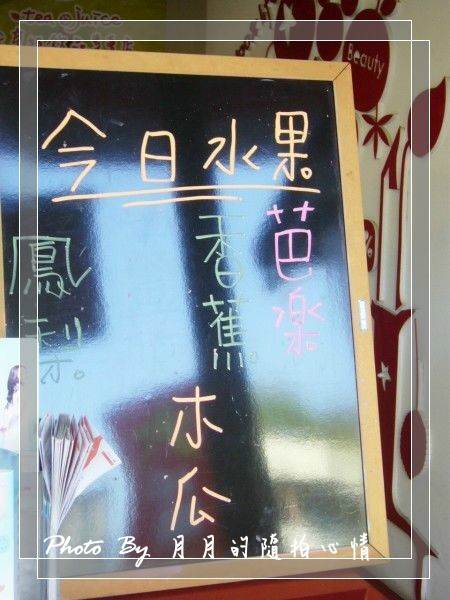 tea juice
Beauty
今日水果
芭樂
香蕉
鳳梨
木瓜
Photo By 月月的隨拍心情